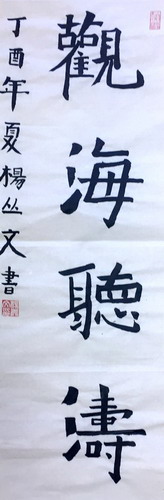 觀海聽濤
丁酉年夏楊丛文書